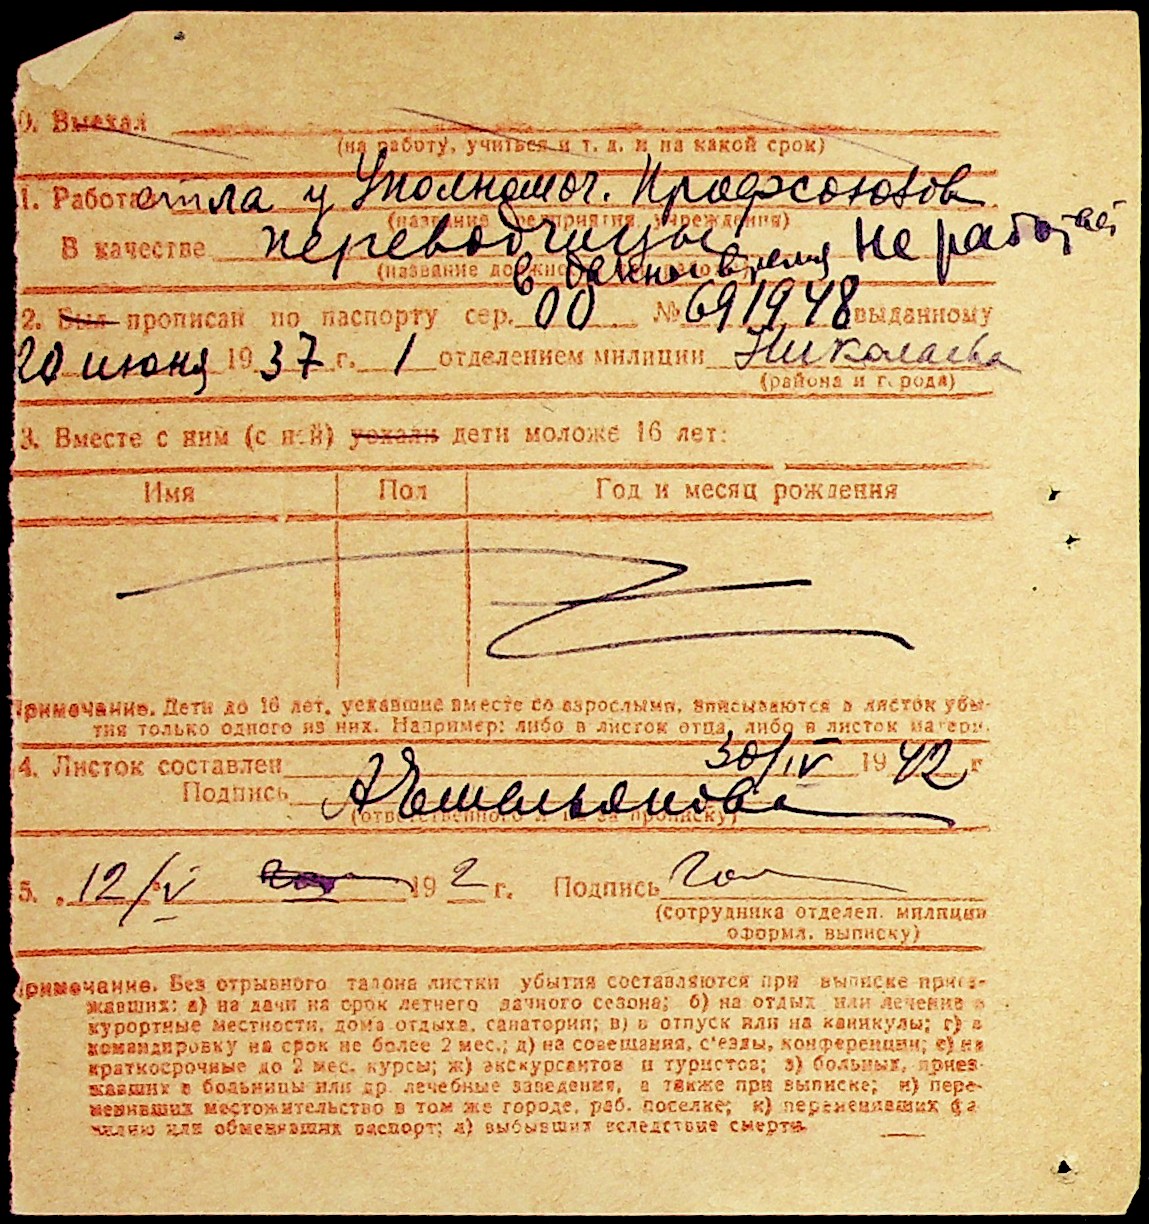 0. Выехал
(на работу, учиться и т. д. и на какой срок)
1. Работала у Уполномоч. Профсоюзов
(название предприятия, учреждения)
В качестве переводчицы
в данное время не работает
(название должности)
2. Был прописан по паспорту сер. 00 № 691948 выданному
20 июня 1937 г. 1 отделением милиции Николаева
(района и города)
3. Вместе с ним (с ней) уехали дети моложе 16 лет:
Имя Пол Год и месяц рождения
Примечание. Дети до 16 лет, уехавшие вместе со взрослыми, вписываются в листок убы-
тия только одного из них. Например: либо в листок отца, либо в листок матери.
4. Листок составлен 30/IV 1942 г
Подпись А Емельянова
(ответственного лица за прописку)
5. 12/V 192 г. Подпись
(сотрудника отделен. милиции
оформл. выписку)
Примечание. Без отрывного талона листки убытия составляются при выписке приез-
жавших: а) на дачи на срок летнего дачного сезона; б) на отдых или лечение в
курортные местности, дома отдыха, санатории; в) в отпуск или на каникулы; г) в
командировку на срок не более 2 мес.; д) на совещания, с'езды, конференции; е) на
краткосрочные до 2 мес. курсы; ж) экскурсантов и туристов; з) больных, приез-
жавших в больницы или др. лечебные заведения, а также при выписке; и) пере-
менивших местожительство в том же городе, раб. поселке; к) переменивших фа-
милию или обменявших паспорт; л) выбывших вследствие смерти.